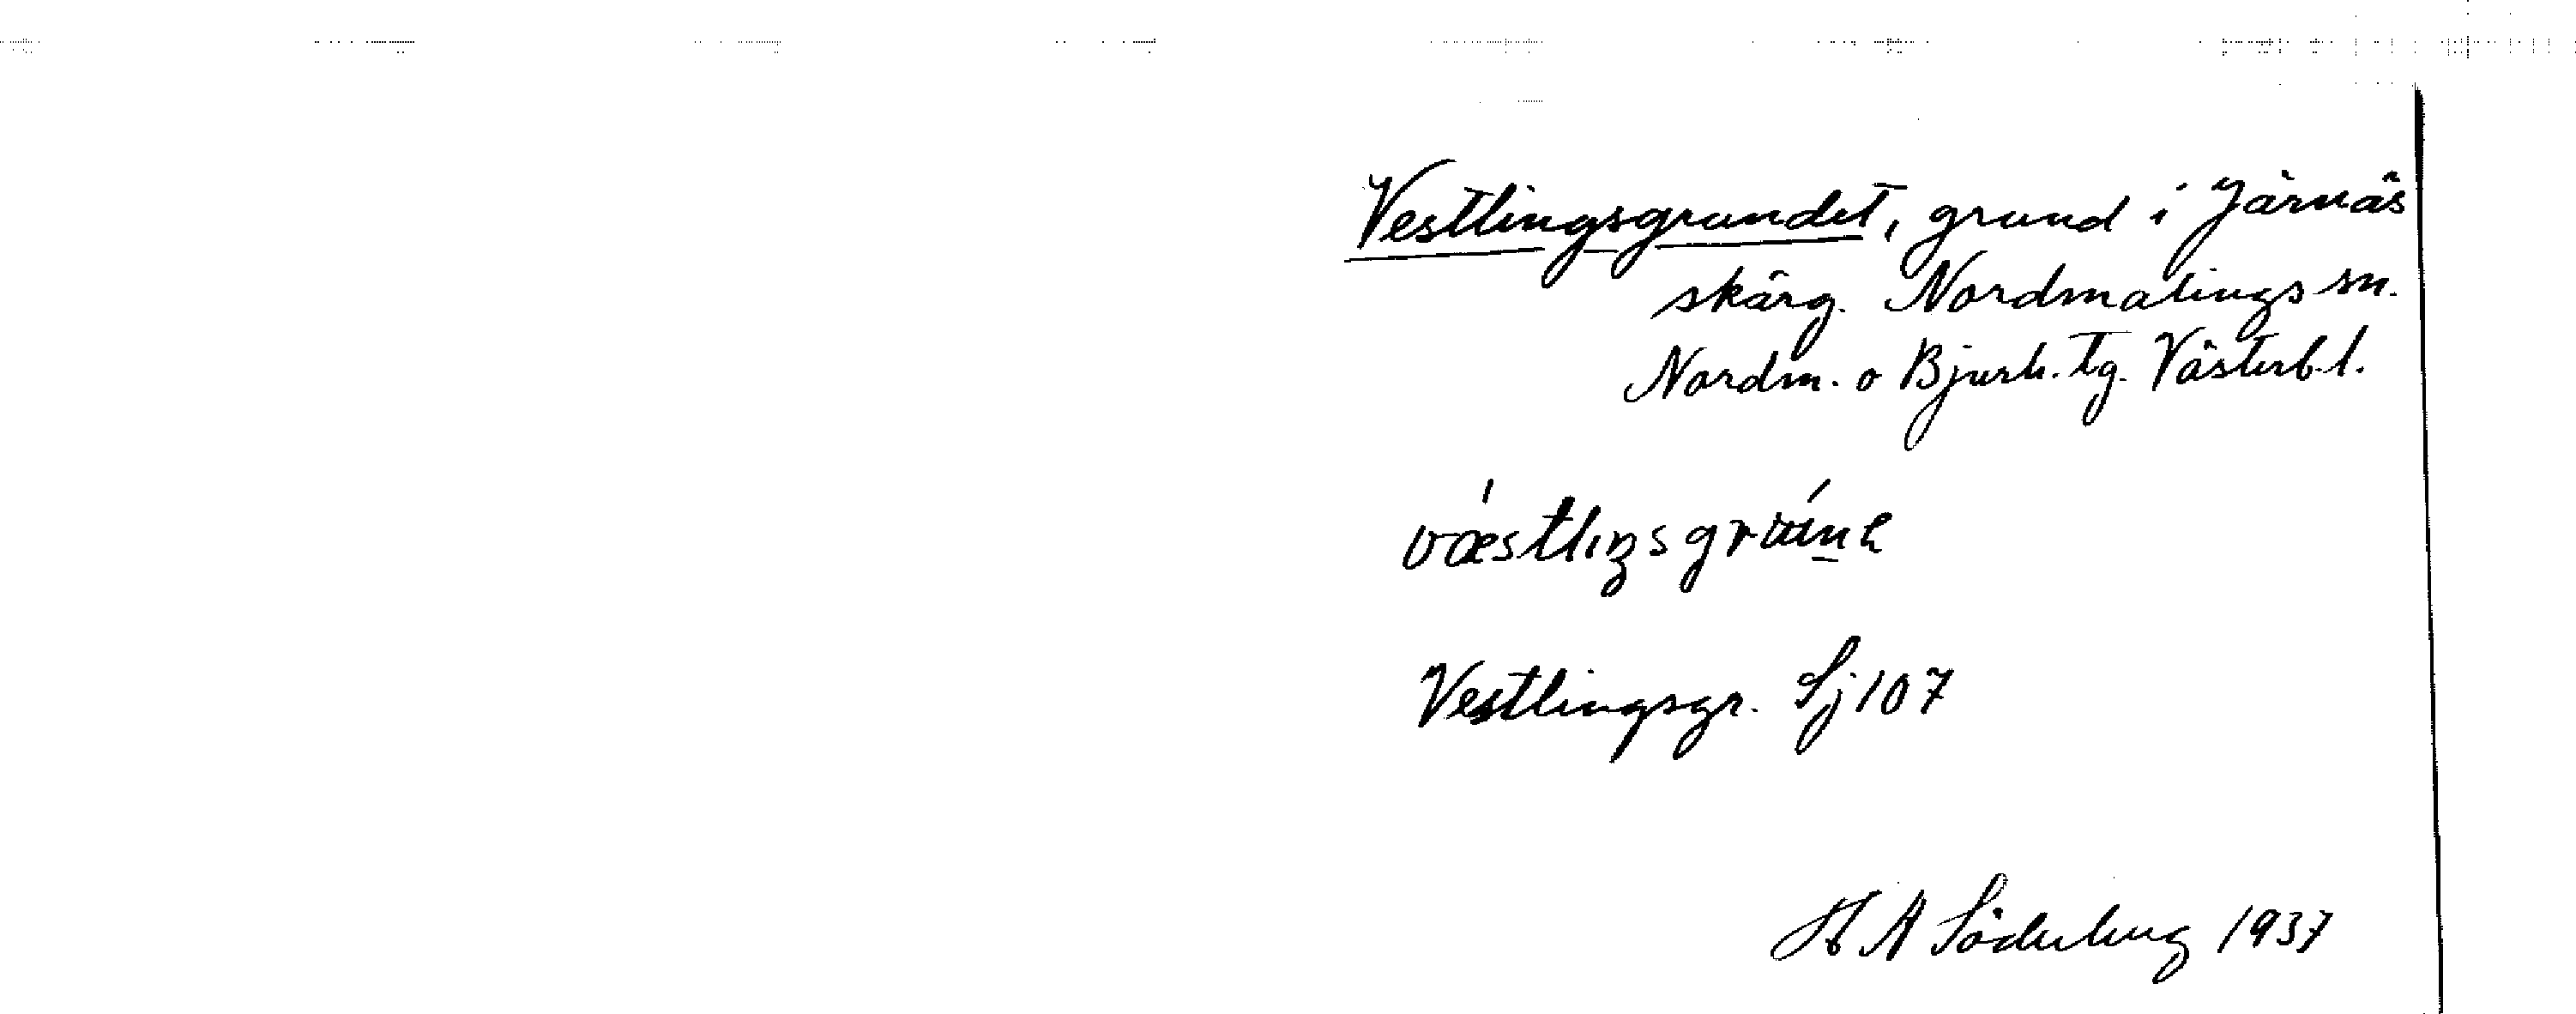 Vestlingsgrundet, grund i Järnäs
skärg. Nordmalings sn.
Nordm. o Bjurh. tg. Västerb. l.
Vestlingsgr. Sj 107
H A Söderberg 1937